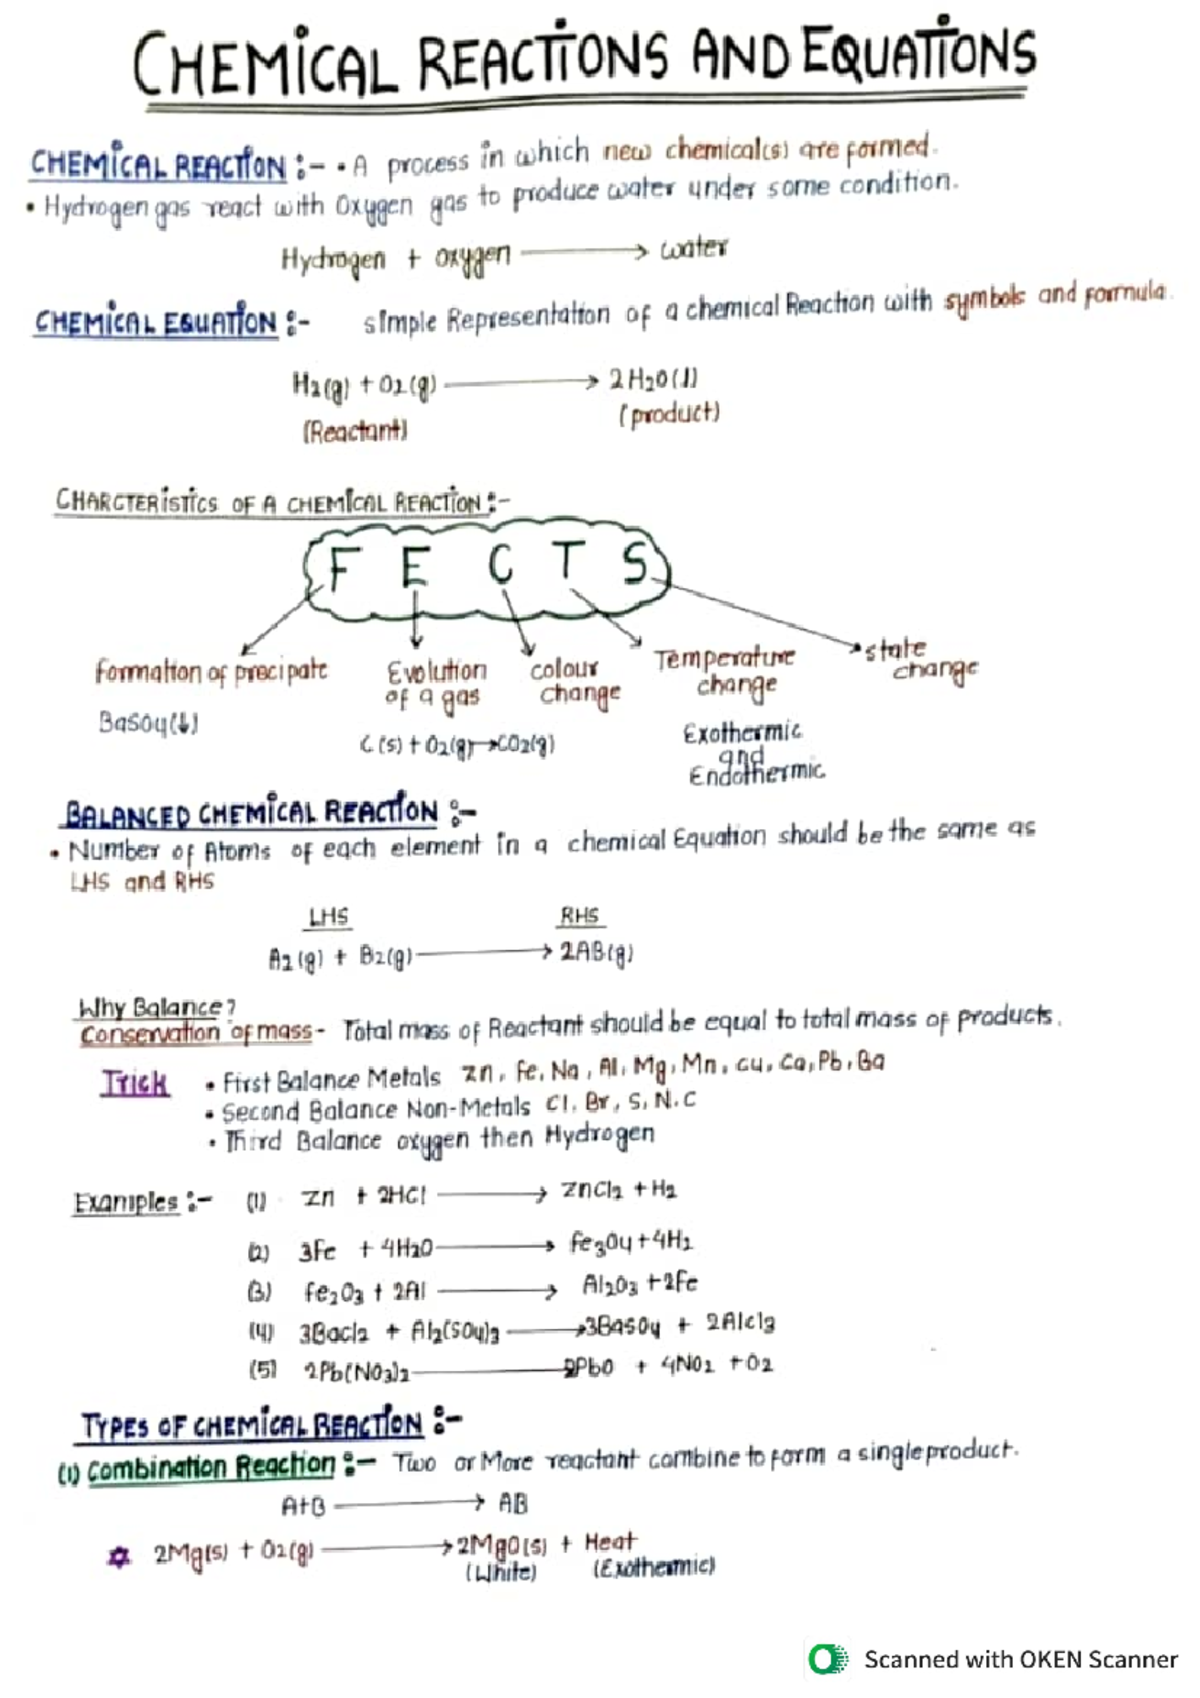 CHEMICAL REACTIONS AND EQUATIONS
CHEMICAL REACTION :- • A process in which new chemical(s) are formed.
• Hydrogen gas react with Oxygen gas to produce water under some condition.
Hydrogen + oxygen → water
CHEMICAL EQUATION :- simple Representation of a chemical Reaction with symbols and formula.
H2(g) + O2(g) → 2H2O(l)
(Reactant) (product)
CHARCTERISTICS OF A CHEMICAL REACTION :-
F E C T S
Formation of precipate Evolution of a gas colour change Temperature change state change
BaSO4(↓) C(s) + O2(g) → CO2(g) Exothermic and Endothermic
BALANCED CHEMICAL REACTION :-
• Number of Atoms of each element in a chemical Equation should be the same as
LHS and RHS
LHS RHS
A2(g) + B2(g) → 2AB(g)
Why Balance?
Conservation of mass - Total mass of Reactant should be equal to total mass of products.
Trick • First Balance Metals Zn, Fe, Na, Al, Mg, Mn, Cu, Ca, Pb, Ba
• Second Balance Non-Metals Cl, Br, S, N, C
• Third Balance oxygen then Hydrogen
Examples :- (1) Zn + 2HCl → ZnCl2 + H2
(2) 3Fe + 4H2O → Fe3O4 + 4H2
(3) Fe2O3 + 2Al → Al2O3 + 2Fe
(4) 3BaCl2 + Al2(SO4)3 → 3BaSO4 + 2AlCl3
(5) 2Pb(NO3)2 → 2PbO + 4NO2 + O2
TYPES OF CHEMICAL REACTION :-
(1) Combination Reaction :- Two or More reactant combine to form a single product.
A+B → AB
2Mg(s) + O2(g) → 2MgO(s) + Heat
(White) (Exothermic)
Scanned with OKEN Scanner